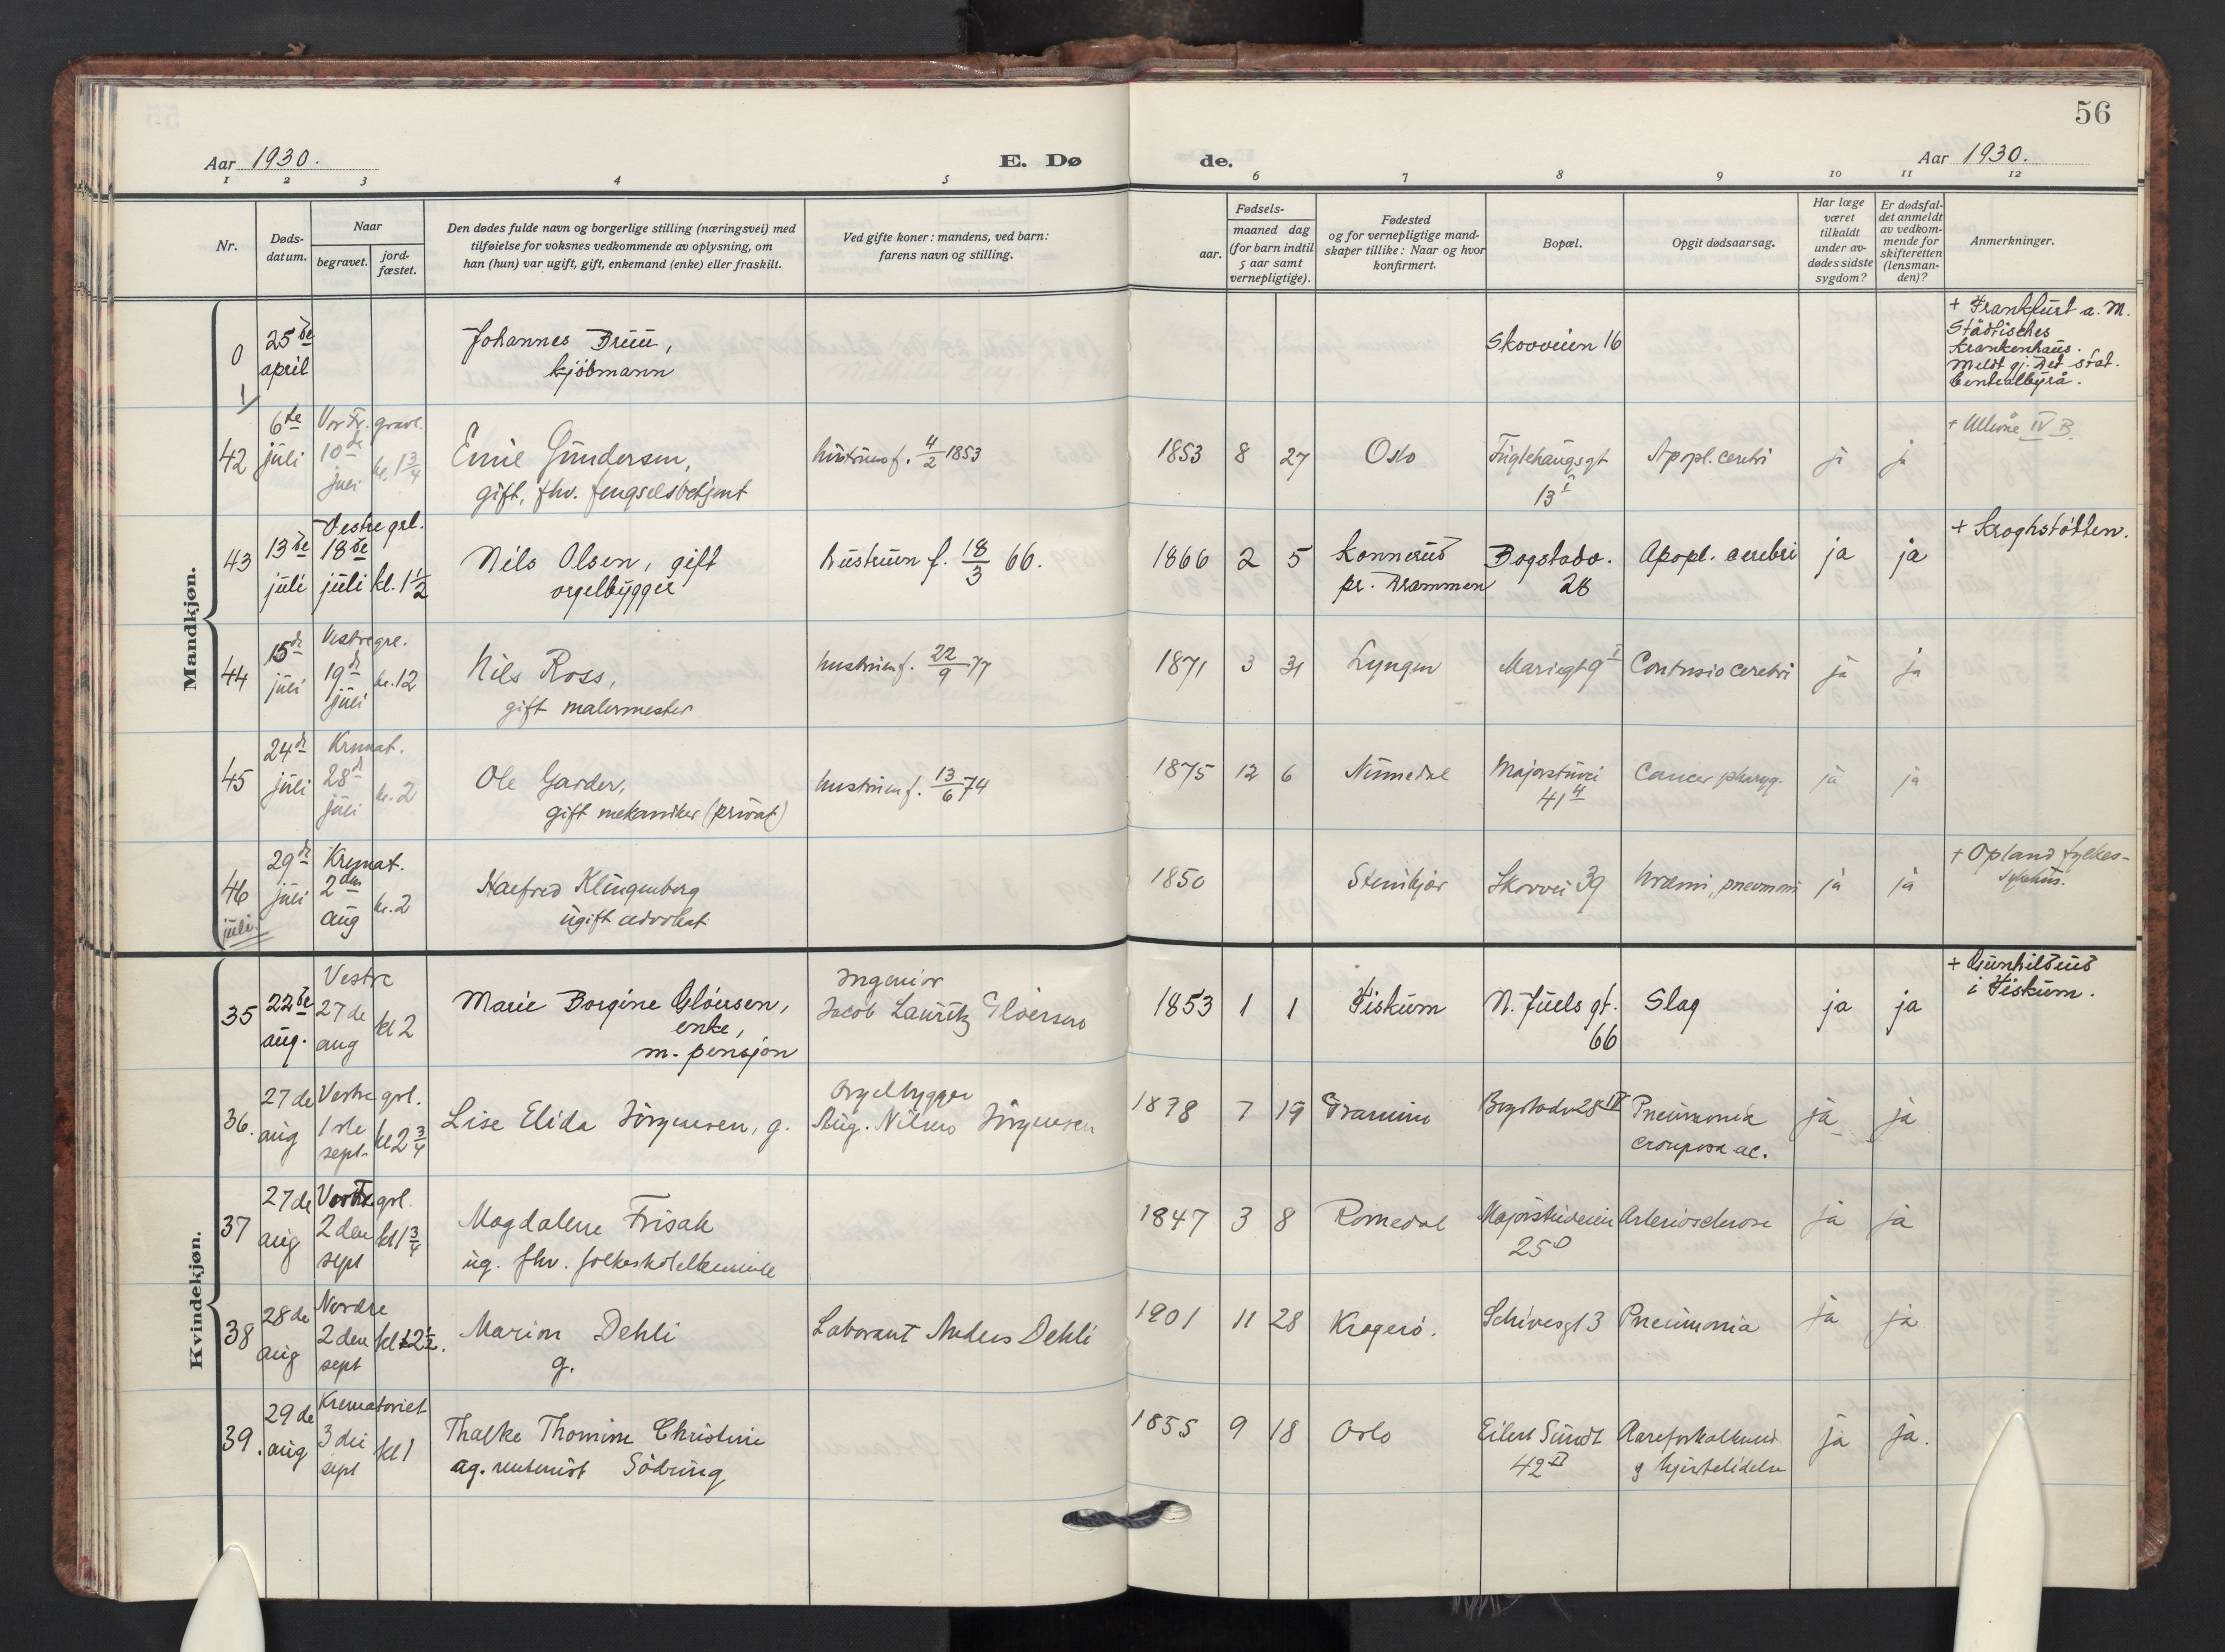 56
Aar 1930.
E. Døde.
Aar 1930.
1 2 3 4 5 6 7 8 9 10 11 12
Nr.
Døds-
datum.
Naar
begravet.
jord-
fæstet.
Den dødes fulde navn og borgerlige stilling (næringsvei) med
tilføielse for voksnes vedkommende av oplysning, om
han (hun) var ugift, gift, enkemand (enke) eller fraskilt.
Ved gifte koner: mandens, ved barn:
farens navn og stilling.
Fødsels-
aar.
maaned dag
(for barn indtil
5 aar samt
vernepligtige).
Fødested
og for vernepligtige mand-
skaper tillike: Naar og hvor
konfirmert.
Bopæl.
Opgit dødsaarsag.
Har læge
været
tilkaldt
under av-
dødes sidste
sygdom?
Er dødsfal-
det anmeldt
av vedkom-
mende for
skifteretten
(lensman-
den)?
Anmerkninger.
Mandkjøn.
0 25de april
Johannes Bruu,
kjöbmann
Skovveien 16
+ Frankfurt a. M.
Städtisches
Krankenhaus.
Meldt gj. Det stat.
Centralbyrå.
42 6te juli Vor Fr. gravl. 10de juli kl. 1 3/4
Emil Gundersen,
gift, fhv. fengselsbetjent
hustruen f. 4/2 1853
1853 8 27 Oslo
Fuglehaugsgt
13 I
Apopl. cerebri ja ja
+ Ullevål IV B.
43 13de juli Vestre grl. 18de juli kl. 1 1/2
Nils Olsen, gift
orgelbygger
hustruen f. 18/3 66.
1866 2 5 Konnerud
pr. Drammen
Bogstadv.
28
Apopl. cerebri ja ja
+ Kroghstötten.
44 15de juli Vestre grl. 19de juli kl. 12
Nils Ross,
gift malermester
hustruen f. 22/9 77
1871 3 31 Lyngen Mariegt 9 I Contusio cerebri ja ja
45 24de juli Kremat. 28de juli kl. 2
Ole Garder,
gift mekaniker (privat)
hustruen f. 13/6 74
1875 12 6 Numedal Majorstuvei
41 II
Cancer pharyg. ja ja
46 29de juli Kremat. 2den aug kl. 2
juli
Halfred Klingenberg
ugift advokat
1850 Steinkjær Skovvei 39 Uræmi, pneumoni ja ja
+ Opland fylkes-
sykehus.
Kvindekjøn.
35 22de aug. Vestre 27de aug kl 2
Marie Borgine Glöersen,
enke,
m. pensjon
Ingeniør
Jacob Lauritz Glöersen
1853 1 1 Fiskum N. Juels gt.
66
Slag ja ja
+ Gunhildrud
i Fiskum.
36. 27de aug Vestre grl. 1ste sept. kl 2 3/4
Lise Elida Jörgensen, g.
Orgelbygger
Aug. Nilmo Jörgensen
1878 7 19 Drammen Bogstadv 28 IV Pneumonia
crouposa ac.
ja ja
37 27de aug Vor Fr. grl. 2den sept kl 1 3/4
Magdalene Frisak
ug. fhv. folkeskolelærerinde
1847 3 8 Romedal Majorstuveien
25
Arteriosclerose ja ja
38 28de aug Nordre 2den sept kl 12 1/2.
Marion Dehli
g.
Laborant Anders Dehli
1901 11 28 Kragerö. Schivesgt 3 Pneumonia ja ja
39. 29de aug Krematoriet 3die sept kl 1
Thalke Thomine Christine
ug. rentenist Södring
1855 9 18 Oslo Eilert Sundt
42 II
Aareforkalkning
g hjertelidelse
ja ja.